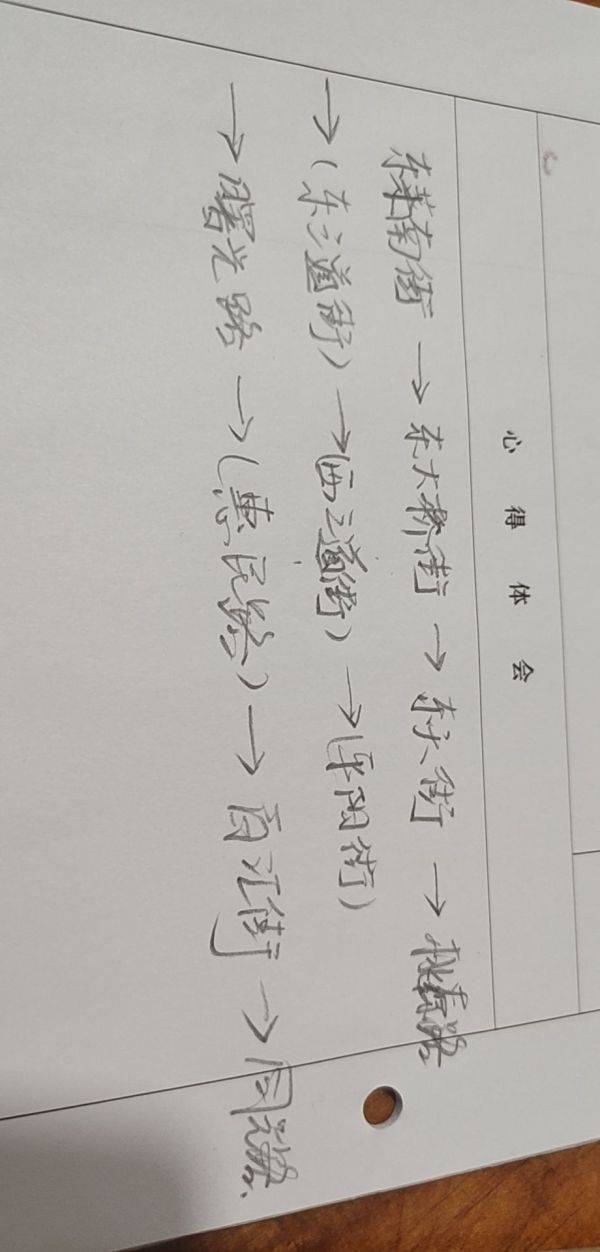 心得体会
东莱南街 → 东大桥街 → 东大街 → 桃春路
→ (东三道街) → 西三道街) → (乐阳街)
→ 曙光路 → (惠民路) → 商汇街 → 同兴路